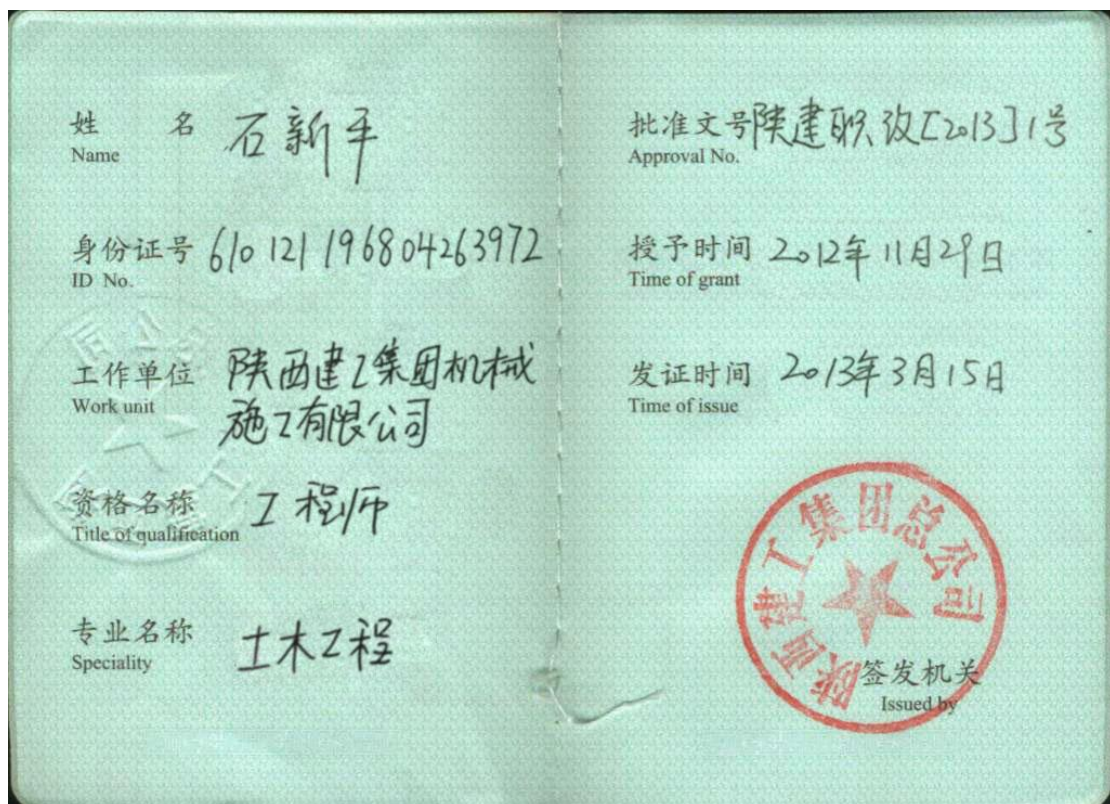 姓 名 石新平
Name
身份证号 610121196804263972
ID No.
工作单位 陕西建工集团机械
Work unit
施工有限公司
资格名称 工程师
Title of qualification
专业名称 土木工程
Speciality
批准文号 陕建职改[2013]1号
Approval No.
授予时间 2012年11月29日
Time of grant
发证时间 2013年3月15日
Time of issue
陕西建工集团总公司
签发机关
Issued by